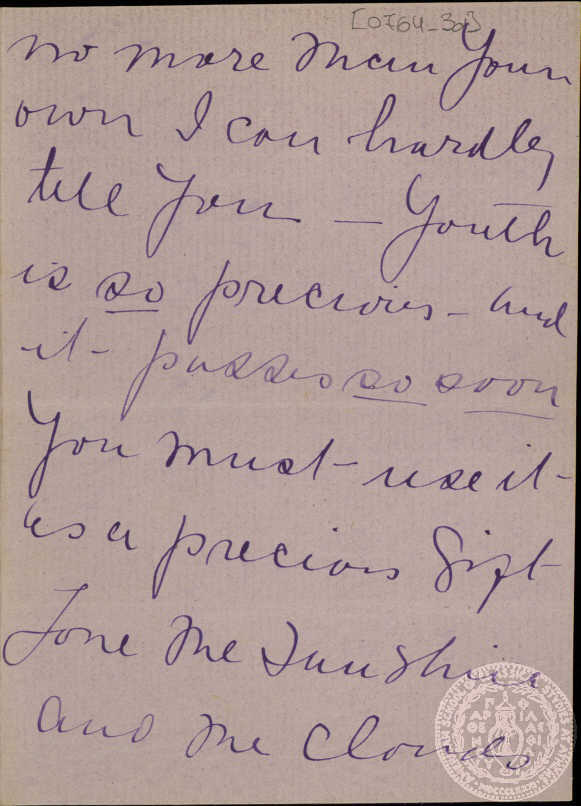 [0764_3a]
no more than Your
own I can hardly
tell You — Youth
is so precious - and
it - passes so soon
You must - use it -
as a precious Gift
Love the Sunshine
and the Clouds